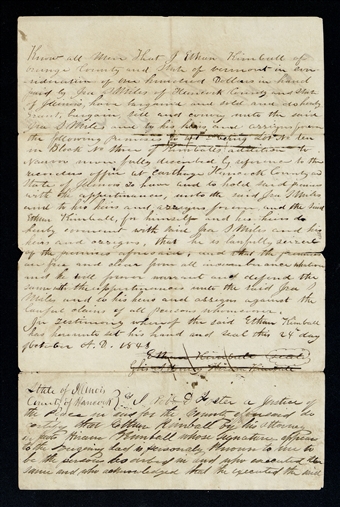 Know all Men That I Ethan Kimball of
orange County and State of vermont in con
sideration of one hundred Dollars in hand
paid by Ira S Miles of Hancock County and State
of Illinois, have bargained and sold and do hereby
Grant, bargain sell and convey unto the said
Ira S Miles and to his heirs and assigns forever
the following Premises to wit Lot ten
in Block No three of Kimballs addition to
Nauvoo more fully described by reference to the
recorders office at Carthage Hancock County and
State of Illinois To have and to hold said premises
with the appurtenances, unto the said Ira S Miles
and to his heirs and assigns forever and the said
Ethan Kimball, for himself and his heirs do
hereby covenant with said Ira S Miles and his
heirs and assigns, that he is lawfully seized
of the premises aforesaid, and that the premises
are free and clear from all incumbrance whatever
and he will forever warrant and defend the
same with the appurtenances unto the said Ira S
Miles and to his heirs and assigns against the
lawful claims of all persons whomsoever.
In Testimony whereof the said Ethan Kimball
has hereunto set his hand and seal this 24 day
October A. D. 1843
Ethan Kimball (Seal)
Kimball
State of Illinois
County of Hancock
Foster a Justice of
the Peace in and for the County aforesaid do
certify that Ethan Kimball by his attorney
Kimball whose signature appears
to the foregoing deed is personally known to me to
be the person described in and who executed the
same and who acknowledged that he executed the said